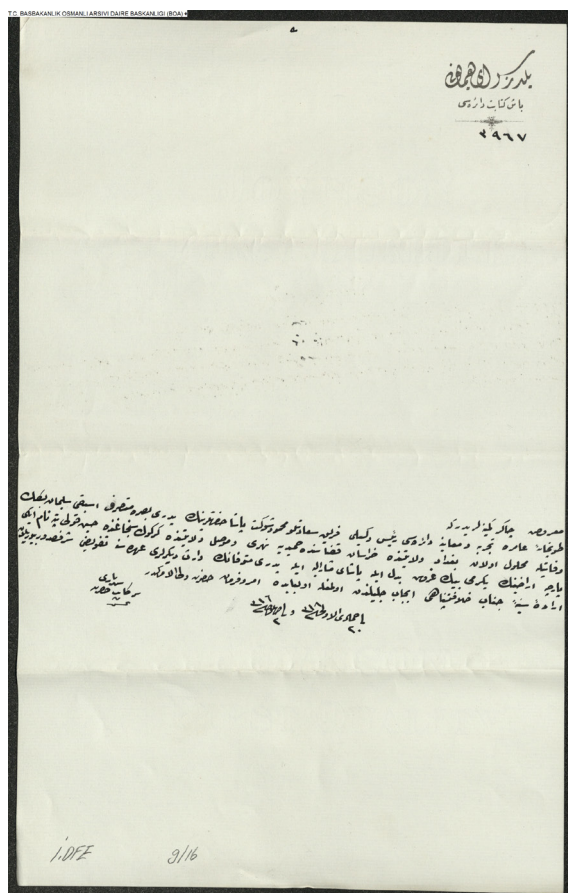 T.C. BASBAKANLIK OSMANLI ARSIVI DAIRE BASKANLIGI (BOA)
يلديز سراى همايونى
باش كتابت دائره سى
٣٩٦٧
معروض چاكركمينه لريدركه
طوپخانهٔ عامره تجربه و معاينه دائره سى رئيس وكيلى فريق سعادتلو محمود شوكت پاشا حضرتلرينك پدرى بصره متصرفى اسبق سليمان بكك
وفاتيله محلول اولان بغداد ولايتنده خراسان قضاسنده حميديه نهرى و موصل ولايتنده كركوك سنجاغنده نام ايكى
پارچه اراضينك يكرمى بيك غروش بدل ايله پاشاى مشار اليه ايله پدرى متوفانك وارث ديكرلرى عهده سنه تفويضى
ارادهٔ سنيهٔ جناب خلافتپناهى ايجاب جليلندن اولمغله اولبابده امر و فرمان حضرت ولى الامركدر
سركاتب حضرت شهريارى
İ.DFE 9/16